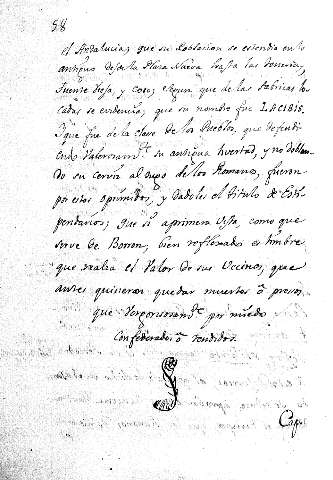 58
el Andalucia; que su Poblacion se estendia en lo
antiguo desde la Plaza Nueva hasta las Tenerias,
fuente vieja, y coso; segun que de las fabricas lo-
cadas se evidencia, que su nombre fue LACIBIS,
y que fue de la clase de los Pueblos, que defendi-
endo Valerosam.te su antigua livertad, y no doblan-
do su cerviz al yugo de los Romanos, fueron
por estos oprimidos, y dadoles el titulo de Esti-
pendarios; que si aprimera vista, como que
sirve de Borron, bien reflexado es timbre
que realza el Valor de sus Vecinos, que
antes quisieron quedar muertos ô presos
que Vergonzosam.te por miedo
Confederados ô rendidos.
Cap.